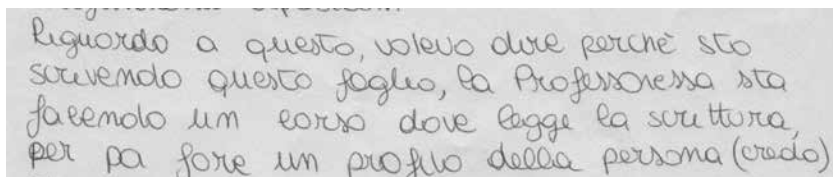 Riguardo a questo, volevo dire perchè sto
scrivendo questo foglio, la Professoressa sta
facendo un corso dove legge la scrittura,
per pa fare un profilo della persona (credo)